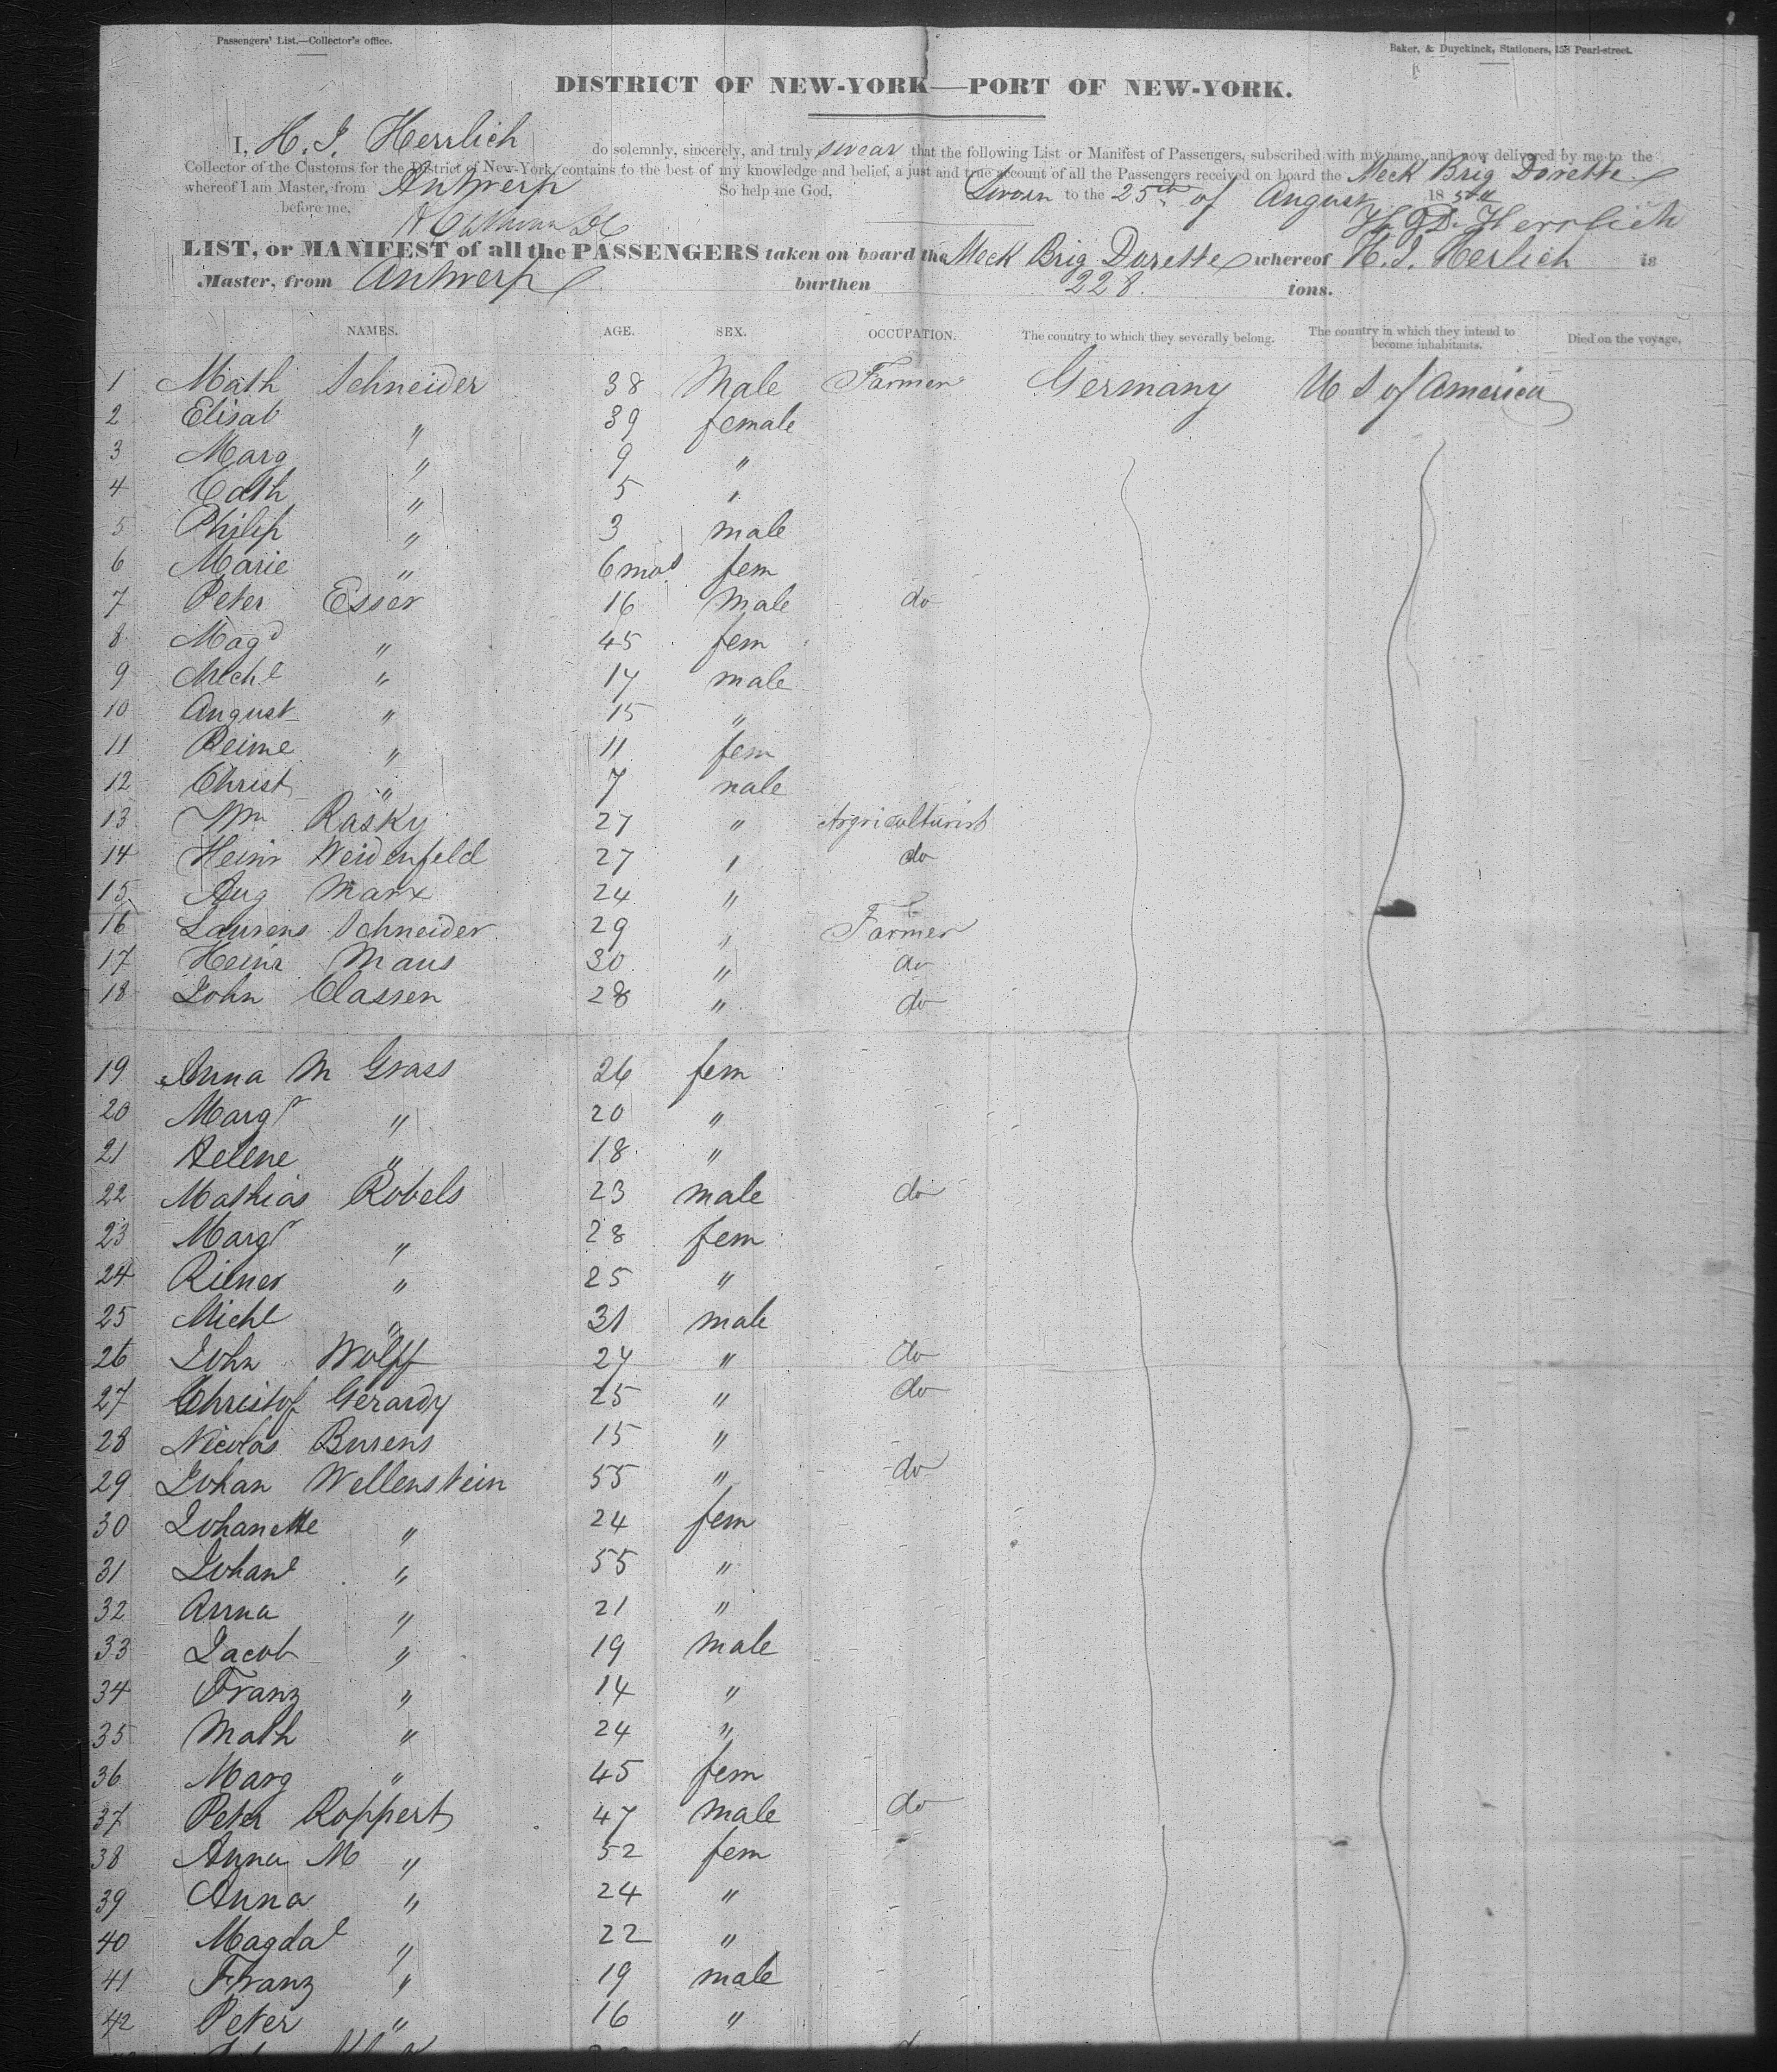 Passengers' List.—Collector's office.
Baker, & Duyckinck, Stationers, 158 Pearl-street.
DISTRICT OF NEW-YORK—PORT OF NEW-YORK.
I, H. J. Herrlich do solemnly, sincerely, and truly swear that the following List or Manifest of Passengers, subscribed with my name, and now delivered by me to the
Collector of the Customs for the District of New-York, contains to the best of my knowledge and belief, a just and true account of all the Passengers received on board the Meck Brig Dorette
whereof I am Master, from Antwerp So help me God,
Sworn to the 25th of August 18
before me, Herrlich
LIST, or MANIFEST of all the PASSENGERS taken on board the Meck Brig Dorette whereof H. J. Herlich is
Master, from Antwerp burthen 228 tons.
NAMES. AGE. SEX. OCCUPATION. The country to which they severally belong. The country in which they intend to become inhabitants. Died on the voyage,
1 Math Schneider 38 Male Farmer Germany U S of America
2 Elisab " 39 female
3 Marg " 9 "
4 Cath " 5 "
5 Philip " 3 male
6 Marie " 6 mos fem
7 Peter Esser 16 male do
8 Magd " 45 fem
9 Michl " 17 male
10 August " 15 "
11 Reime " 11 fem
12 Christ " 7 male
13 Wm Rasky 27 " Argriculturist
14 Heinr Weidenfeld 27 " do
15 Aug Marx 24 "
16 Laurens Schneider 29 " Farmer
17 Heinr Maus 30 " do
18 John Classen 28 " do
19 Anna M Grass 26 fem
20 Margr " 20 "
21 Helene " 18 "
22 Mathias Robels 23 male do
23 Margr " 28 fem
24 Riener " 25 "
25 Michl " 31 male
26 John Wolff 27 " do
27 Christof Gerardy 25 " do
28 Nicolas Burens 15 "
29 Johan Wellenstein 55 " do
30 Johanette " 24 fem
31 Johane " 55 "
32 Anna " 21 "
33 Jacob " 19 male
34 Franz " 14 "
35 Math " 24 "
36 Marg " 45 fem
37 Peter Roppert 47 male do
38 Anna M " 52 fem
39 Anna " 24 "
40 Magdal " 22 "
41 Franz " 19 male
42 Peter " 16 "